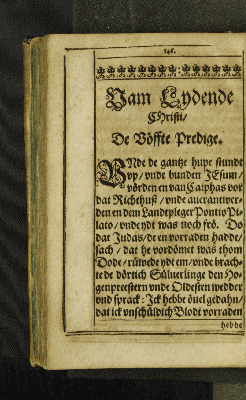 146.
Vam Lydende
Christi/
De Vöffte Predige.
VNde de gantze hupe stundt
vp/ vnde bunden JEsum/
vörden en van Caiphas vor
dat Richthuß/ vnde auerantwer-
den en dem Landtpleger Pontio Pi-
lato/ vnde ydt was noch frö. Do
dat Judas/ de en vorraden hadde/
sach/ dat he vordömet was thom
Dode/ rüwede ydt em/ vnde brach-
te de dörtich Süluerlinge den Ho-
genpreestern vnde Oldesten wedder
vnd sprack: Jck hebbe öuel gedahn/
dat ick vnschüldich Blodt vorraden
hebbe